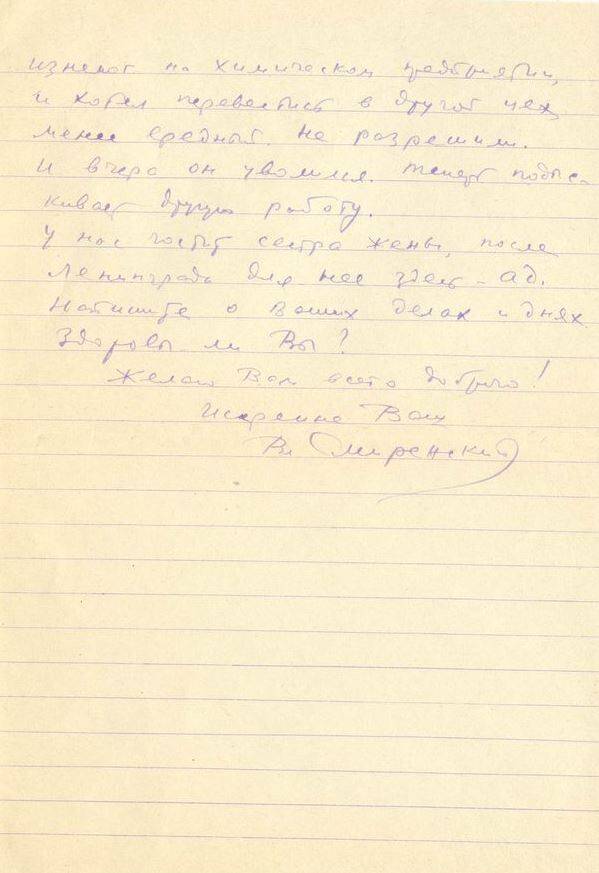 изнемог на химическом предприятии,
и хотел перевестись в другой цех,
менее вредный. Не разрешили.
И вчера он уволился. Теперь подыс-
кивает другую работу.
У нас гостит сестра жены, после
Ленинграда для нее здесь – ад.
Напишите о Ваших делах и днях.
Здоровы ли Вы?
Желаю Вам всего доброго!
Искренне Ваш
Вл Смиренский